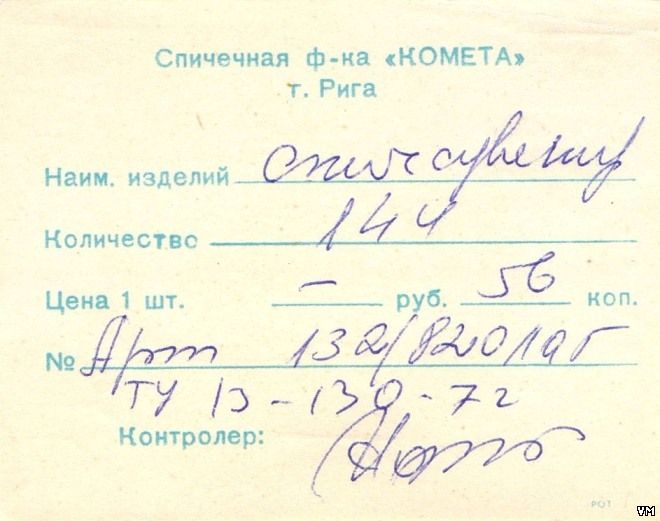 Спичечная ф-ка «КОМЕТА»
т. Рига
Наим. изделий спич сувенир
Количество 144
Цена 1 шт. — руб. 56 коп.
№ Арт 132/820
ТУ 13-130-72
Контролер:
РОТ
VM